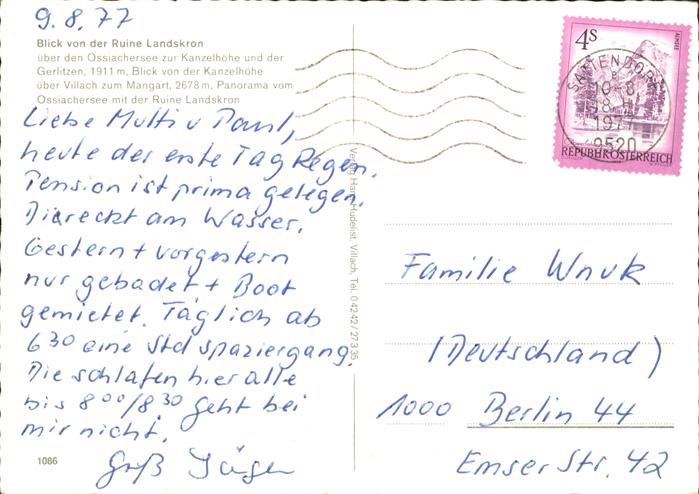 9.8.77
Blick von der Ruine Landskron
über den Ossiachersee zur Kanzelhöhe und der
Gerlitzen, 1911 m, Blick von der Kanzelhöhe
über Villach zum Mangart, 2678 m, Panorama vom
Ossiachersee mit der Ruine Landskron
Liebe Mutti u Paul,
heute der erste Tag Regen.
Pension ist prima gelegen.
Diereckt am Wasser.
Gestern + vorgestern
nur gebadet + Boot
gemietet. Täglich ab
6 30 eine Std spaziergang.
Die schlafen hier alle
bis 8 00/8 30 geht bei
mir nicht.
Gruß Jürgen
1086
Verlag Hans Hudelist, Villach, Tel. 0 42 42 / 27 3 35
4S
ALMSEE
SATTENDORF
1977
9520
REPUBLIK ÖSTERREICH
Familie Wnuk
(Deutschland)
1000 Berlin 44
Emser Str. 42